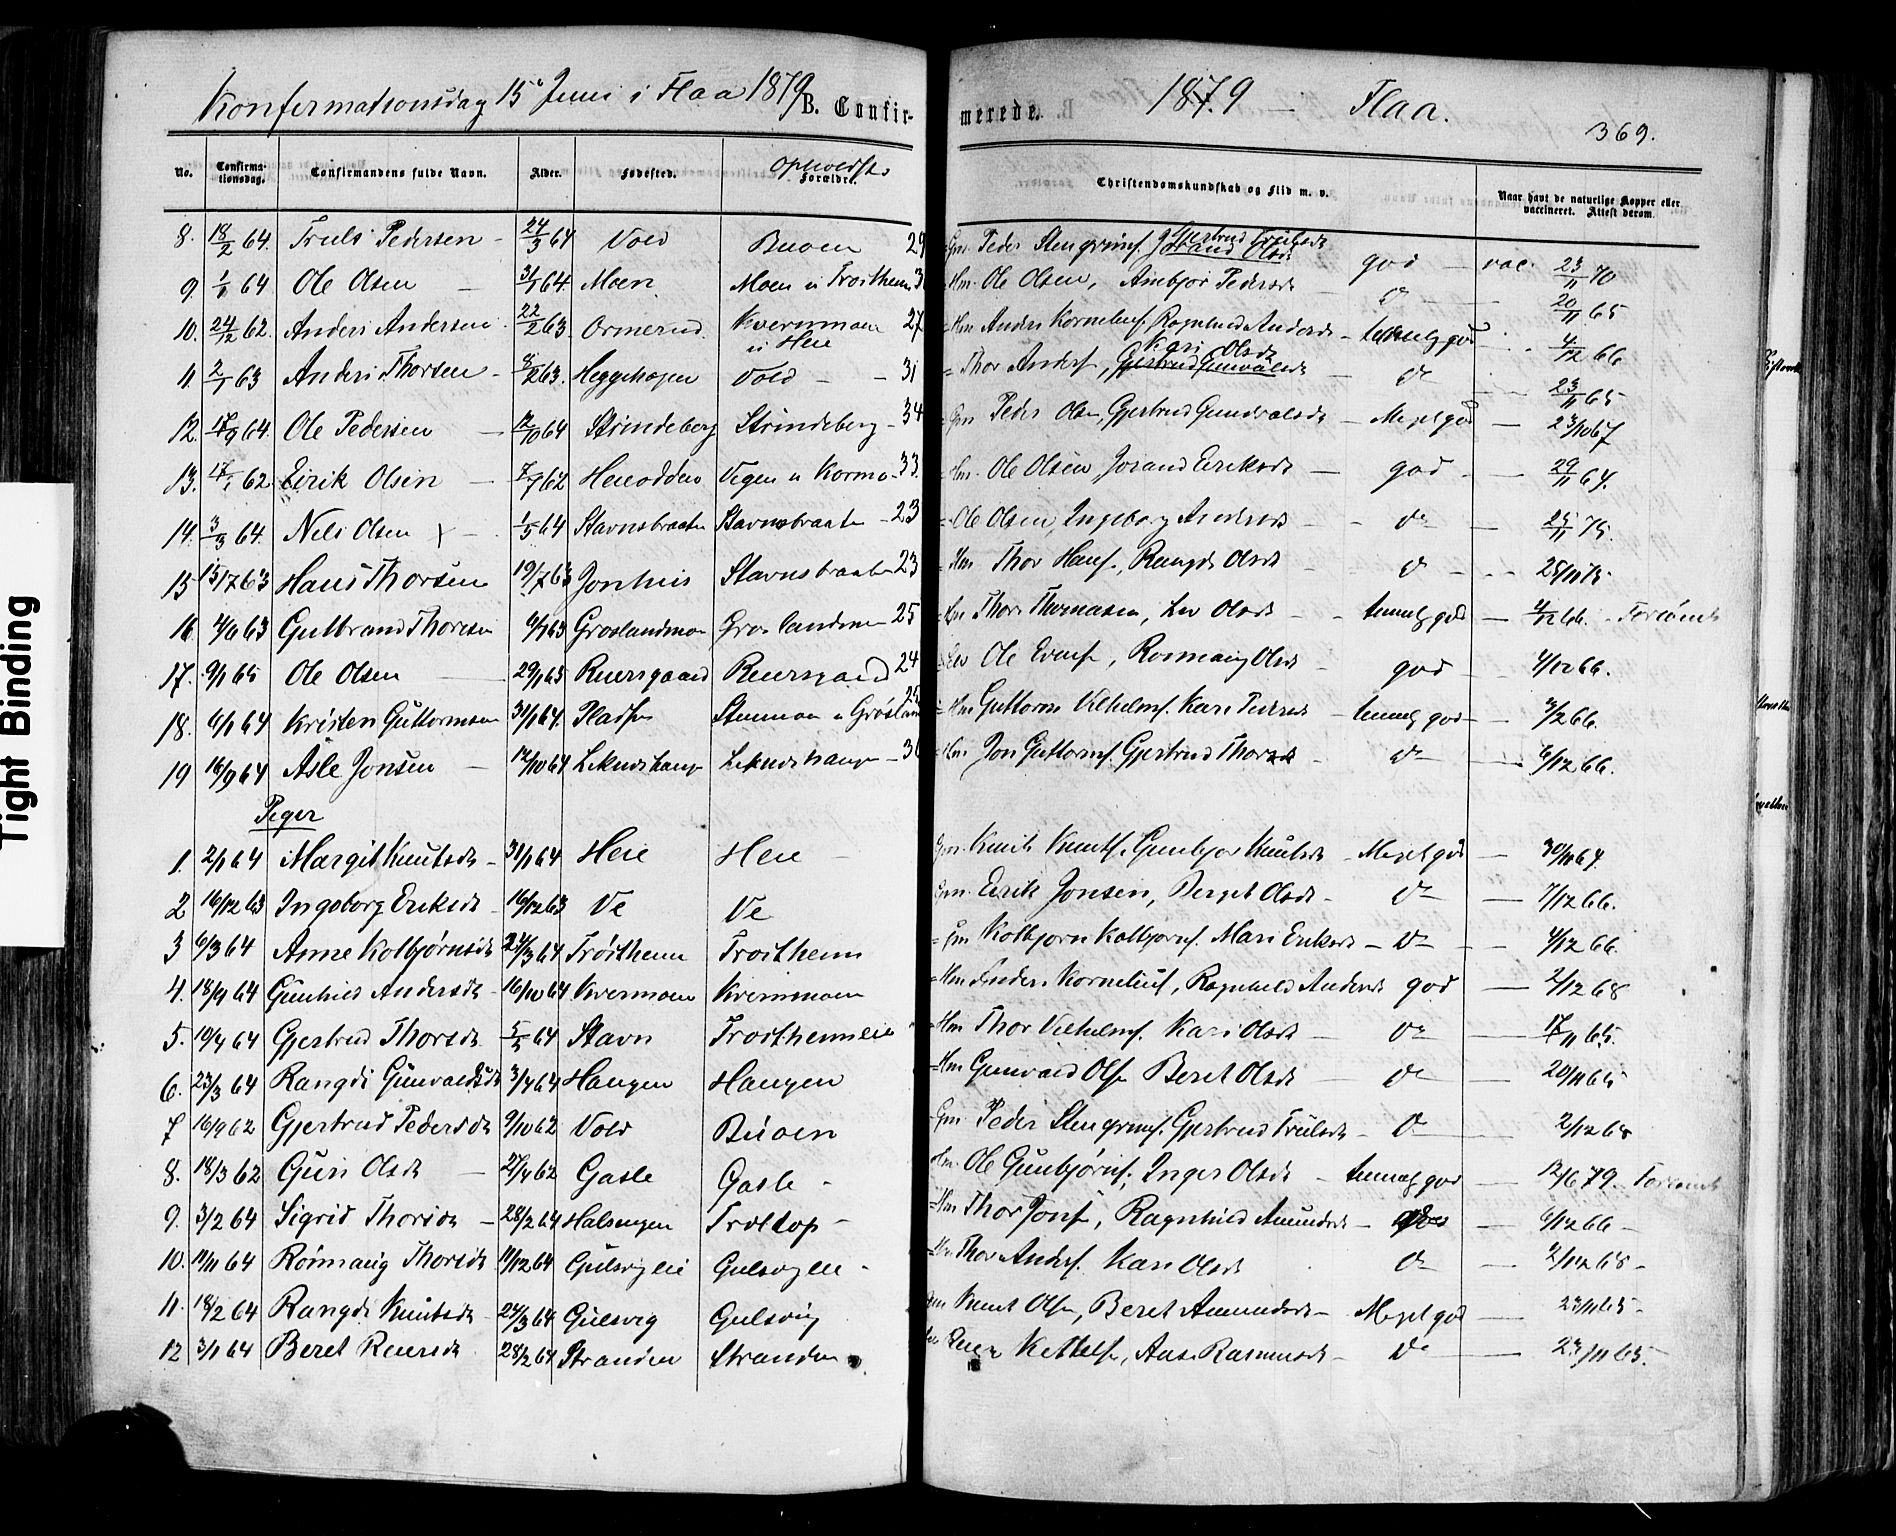 Konfermationsdag 15de Juni i Flaa 1879
B. Confirmerede.
1879 — Flaa.
369.
No. Confirmationsdag. Confirmandens fulde Navn. Alder. Fødested. Opholdsst. Forældre. Christendomskundskab og Flid m. v. Naar havt de naturlige Kopper eller vaccineret. Attest derom.
8. 18/2 64. Truls Pedersen - 24/3 64 Vold Buoen 29 Gm. Peder Stengrimsf. Gjertrud Trulsdt god - vac. 23/11 70
9. 1/1 64 Ole Olsen - 31/1 64. Moen Moen u Troithem Hm. Ole Olsen, Ambjør Pedersdt do 20/11 65
10. 24/12 62. Anders Andersen 22/2 63. Ormerud Kvernmoen u Heie 27 Hm Anders Kornelius. Ragnhild Andersdt - temmelig god 4/12 66
11. 2/1 63 Anders Thorsen - 8/2 63. Heggehagen Vold - - 31 Thor Andersf, Kari Olsdt do 23/11 65
12. 17/9 64. Ole Pedersen - 12/10 64 Strindeberg Strindeberg - 34 Gm Peder Olsen, Gjertrud Gunvalsdt - Meget god - 23/10 67
13. 17/1 62 Eirik Olsen - 7/7 62 Heieodden Vegen u Kormo - 33. Hm. Ole Olsen Jorand Eriksdt - god - 29/11 64.
14. 3/3 64. Nils Olsen X - 1/5 64 Stavnsbraaten Stavnsbraate - 23 Ole Olsen, Ingeborg Andersdt - do - 25/11 75.
15 15/7 63 Hans Thorsen 19/7 63 Jonhus Stavnsbraate 23 Hm Thor Hansf., Rangdi Olsdt - do - 25/11 75.
16 4/6 63 Gulbrand Thorsen Groslandmo Groslandmo 25 Thor Thomasen, Liv Olsdt - temmelig god - 4/12 66.
17. 9/1 65 Ole Olsen 29/1 65 Reiersgaard Reiersgaard 24 Ole Evensf, Rønnaug Olsdt - god - 4/12 66.
18. 6/1 64 Kristen Guttormsen 31/1 64. Pladsen 25 Hm Guttorm Vilhelmsf. Kari Pedersdt - temmelig god - 3/2 66.
19 16/9 64 Asle Jonsen - 12/10 64 Hm Jon Guttormsf. Gjertrud Thorsdt - do - 6/12 66.
Piger
1. 2/1 64 Margit Knutsdt - 31/1 64 Heie Heie - Gm. Knut Knutsf. Gunbjør Knutsdt - Meget god - 30/11 64.
2 16/12 63 Ingeborg Eriksdt - 16/12 63 Ve Ve Gm. Eirik Jonsen, Berget Olsdt - do - 7/12 66.
3 6/3 64 Anne Kolbjørnsdt 27/3 64 Trøithem Troithem Gm Kolbjørn Kolbjørnsf. Mari Eriksdt - do - 4/12 66.
4. 18/9 64 Gunhild Andersdt - 16/10 64 Kvernmoen Kvernmoen Hm Anders Kornelius, Ragnhild Andersdt god - 2/12 68
5. 10/4 64 Gjertrud Thorsdt 5/5 64 Stavn Troithemeie Hm Thor Vilhelmsf. Kari Olsdt - do - 17/11 65.
6. 23/3 64 Rangdi Gunvaldsdt 3/4 64 Haugen Haugen Hm Gunvald Olsf Beret Olsdt - do - 20/11 65
7 16/9 62 Gjertrud Pedersdt 9/10 62 Vold Buoen Gm Peder Stengrimsf. Gjertrud Trulsdt - do - 2/12 68
8. 18/3 62 Guri Olsdt - 27/4 62 Gasle Gasle - Hm. Ole Gunbjørnsf, Inger Olsdt - temmelig god - 12/6 79.
9. 3/2 64 Sigrid Thorsdt - 28/2 64 Halsengen Troltop - Hm Thor Jonsf, Ragnhild Amundsdt - god - 6/12 66 -
10. 11/11 64 Rønnaug Thorsdt 11/12 64 Gulsvigeie Gulsvigeie - Hm Thor Andersf. Kari Olsdt do - 2/12 68 -
11. 18/2 64 Rangdi Knutsdt 27/3 64 Gulsvig Gulsvig Knut Olsf, Beret Amundsdt - Meget god - 23/11 65 -
12 3/1 64 Beret Reiersdt 28/2 64 Stranden Stranden Reier Kittelsf, Ane Rasmusdt - do - 23/11 65.
Tight Binding